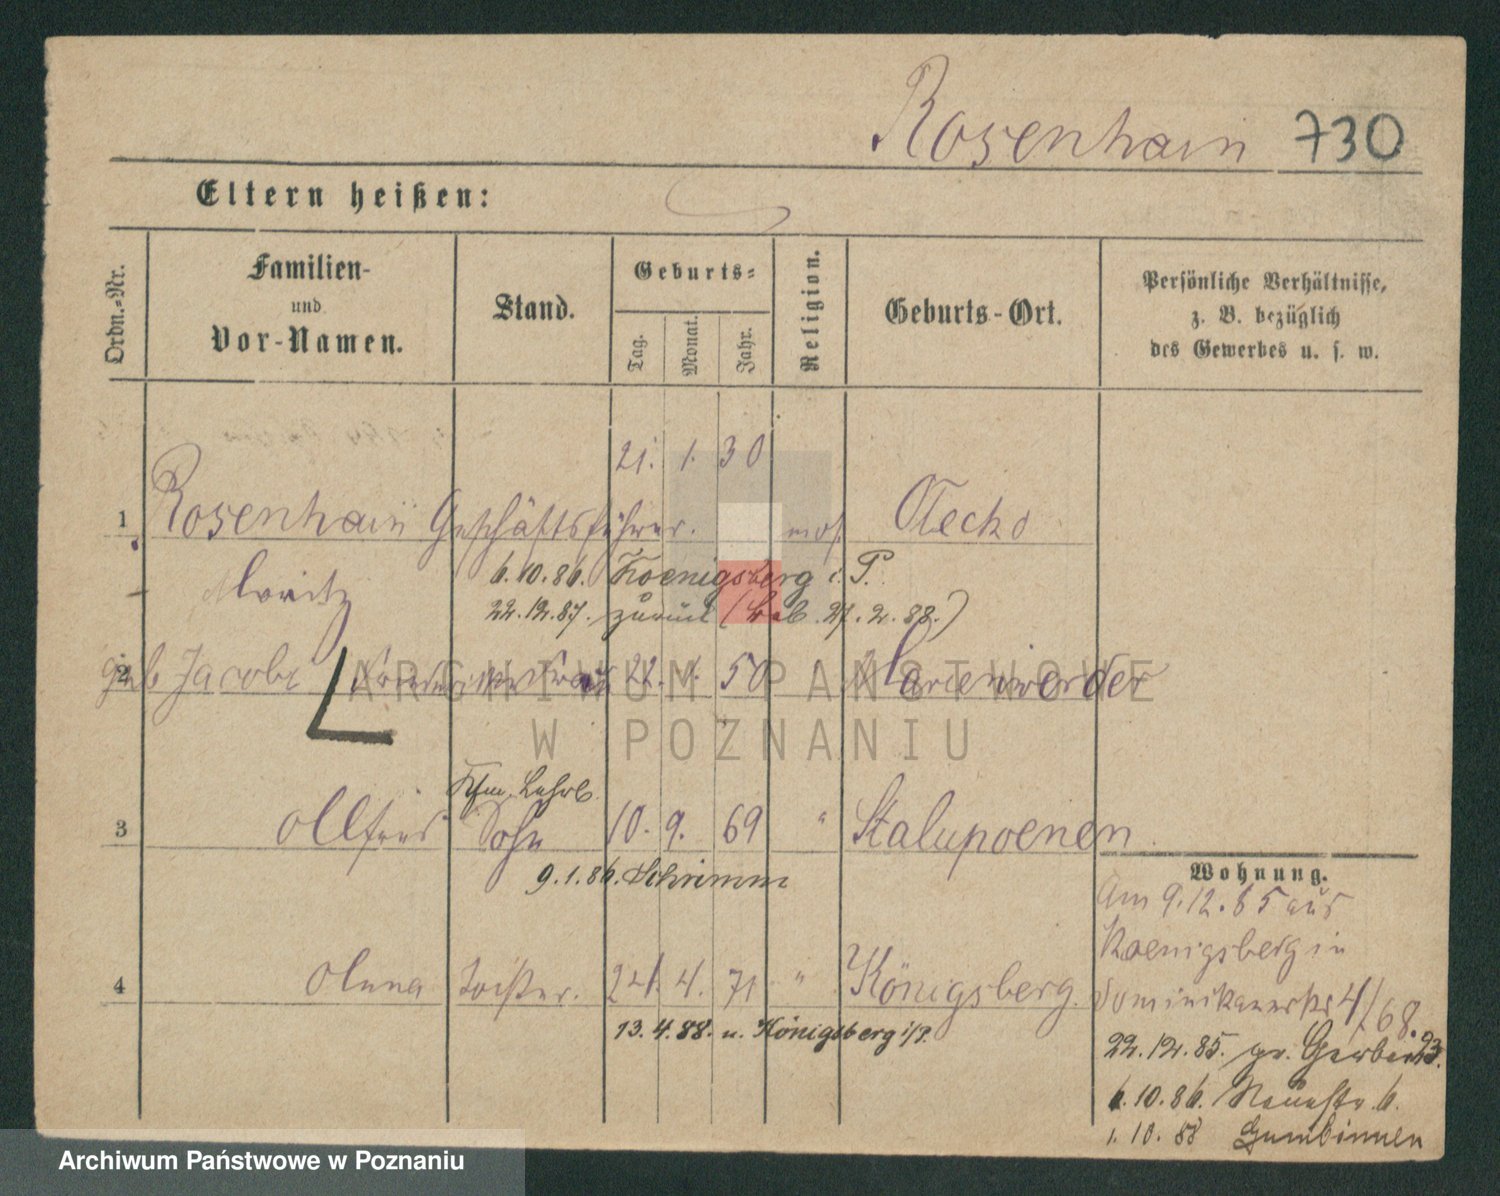 Rosenhain 730
Eltern heißen:
Ordn.-Nr.
Familien-
und
Vor-Namen.
Stand.
Geburts-
Tag.
Monat.
Jahr.
Religion.
Geburts-Ort.
Persönliche Verhältnisse,
z. B. bezüglich
des Gewerbes u. s. w.
21. 1. 30
1 Rosenhain Geschäftsführer. mos. Olecko
Moritz
6.10.86. Koenigsberg i. P.
22.12.87. zurück ( 27.2.88.)
2 geb Jacobi 22. 50 Marienwerder
ARCHIWUM PAŃSTWOWE
W POZNANIU
Kfm. Lehrl.
3 Allfred Sohn 10. 9. 69 " Stalupoenen
9.1.86. Schrimm
Wohnung.
Am 9.12.85 aus
Koenigsberg in
4 Anna Tochter. 24. 4. 71 " Königsberg. Dominikanerstr 4/68.
13.4.88. n. Königsberg i/P.
22.12.85. gr. Gerberstr 23.
6.10.86. Neuestr. 6.
1.10.88 Gumbinnen
Archiwum Państwowe w Poznaniu